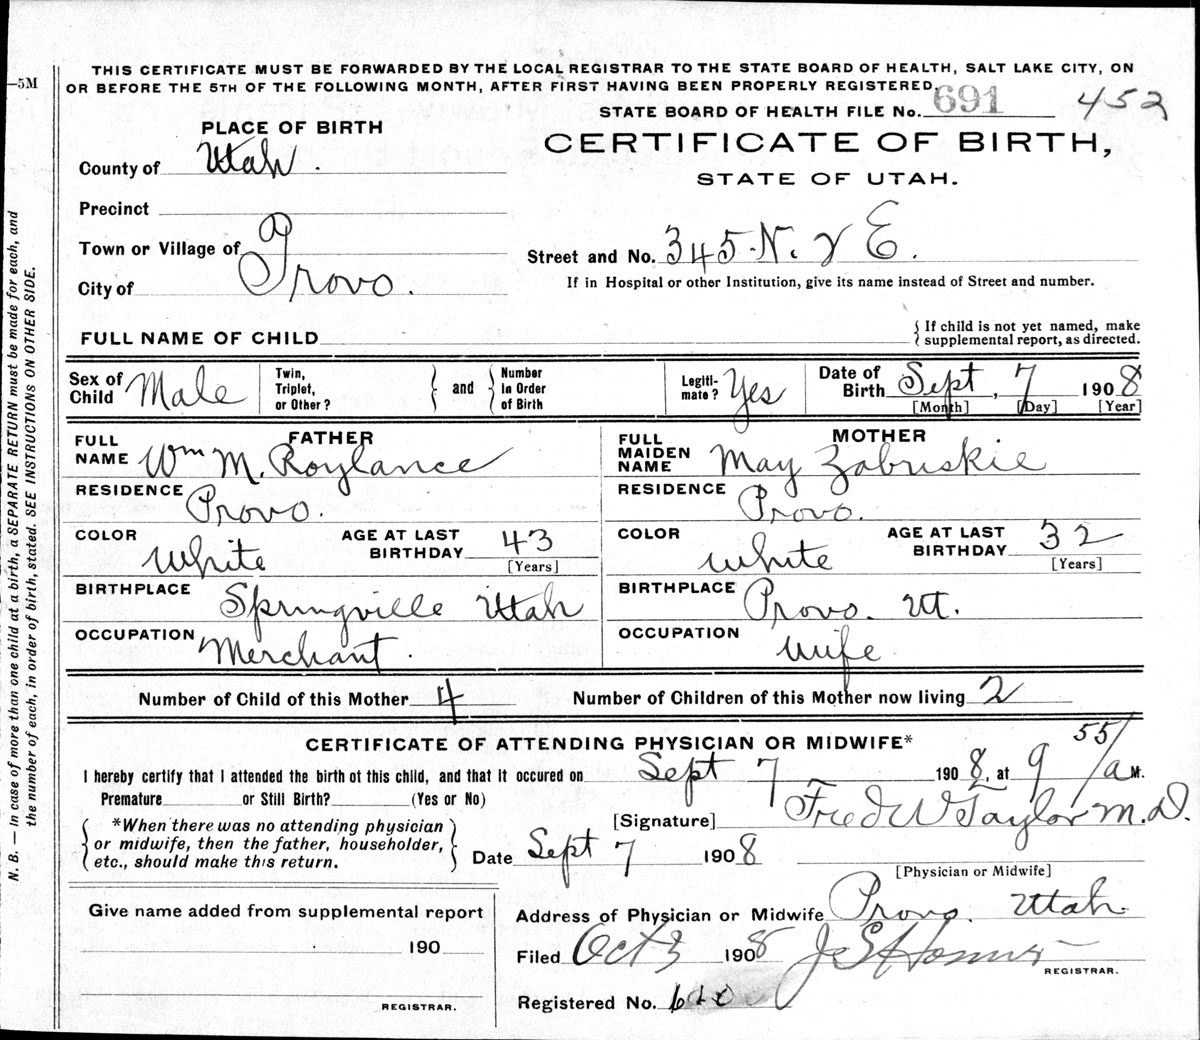 —5M
THIS CERTIFICATE MUST BE FORWARDED BY THE LOCAL REGISTRAR TO THE STATE BOARD OF HEALTH, SALT LAKE CITY, ON
OR BEFORE THE 5TH OF THE FOLLOWING MONTH, AFTER FIRST HAVING BEEN PROPERLY REGISTERED.
STATE BOARD OF HEALTH FILE No. 691 452
PLACE OF BIRTH
CERTIFICATE OF BIRTH,
STATE OF UTAH.
County of Utah.
Precinct
Town or Village of
City of Provo.
Street and No. 345 N. 2 E.
If in Hospital or other Institution, give its name instead of Street and number.
FULL NAME OF CHILD
{ If child is not yet named, make
supplemental report, as directed.
Sex of Child Male
Twin, Triplet, or Other? } and { Number in Order of Birth
Legiti-mate? Yes
Date of Birth Sept 7, 1908
[Month] [Day] [Year]
FATHER
FULL NAME Wm M. Roylance
RESIDENCE Provo.
COLOR White
AGE AT LAST BIRTHDAY 43
[Years]
BIRTHPLACE Springville Utah
OCCUPATION Merchant.
MOTHER
FULL MAIDEN NAME May Zabriskie
RESIDENCE Provo.
COLOR White
AGE AT LAST BIRTHDAY 32
[Years]
BIRTHPLACE Provo. Ut.
OCCUPATION Wife
Number of Child of this Mother 4 Number of Children of this Mother now living 2
CERTIFICATE OF ATTENDING PHYSICIAN OR MIDWIFE*
I hereby certify that I attended the birth of this child, and that it occured on Sept 7 1908, at 9 55/ a M.
Premature or Still Birth? (Yes or No)
{ *When there was no attending physician
or midwife, then the father, householder,
etc., should make this return. }
[Signature] Fred W Taylor M.D.
Date Sept 7 1908
[Physician or Midwife]
Address of Physician or Midwife Provo. Utah.
Filed Oct 3 1908
REGISTRAR.
Registered No.
Give name added from supplemental report
190
REGISTRAR.
N. B. — In case of more than one child at a birth, a SEPARATE RETURN must be made for each, and
the number of each, in order of birth, stated. SEE INSTRUCTIONS ON OTHER SIDE.